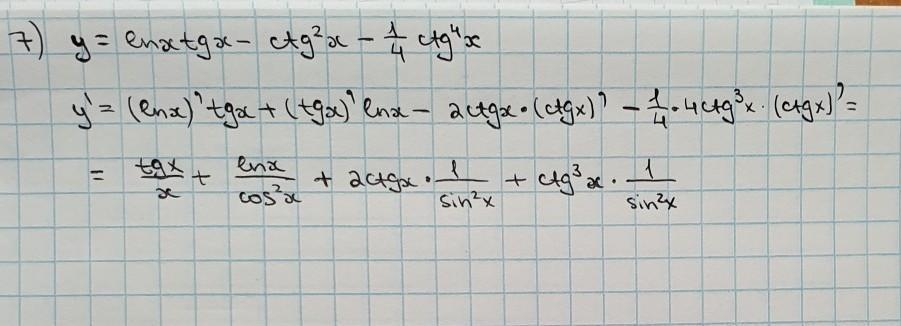 7) y = lnxtgx - ctg²x - 1/4 ctg⁴x
y' = (lnx)'tgx + (tgx)'lnx - 2ctgx·(ctgx)' - 1/4·4ctg³x·(ctgx)' =
= tgx/x + lnx/cos²x + 2ctgx·1/sin²x + ctg³x·1/sin²x